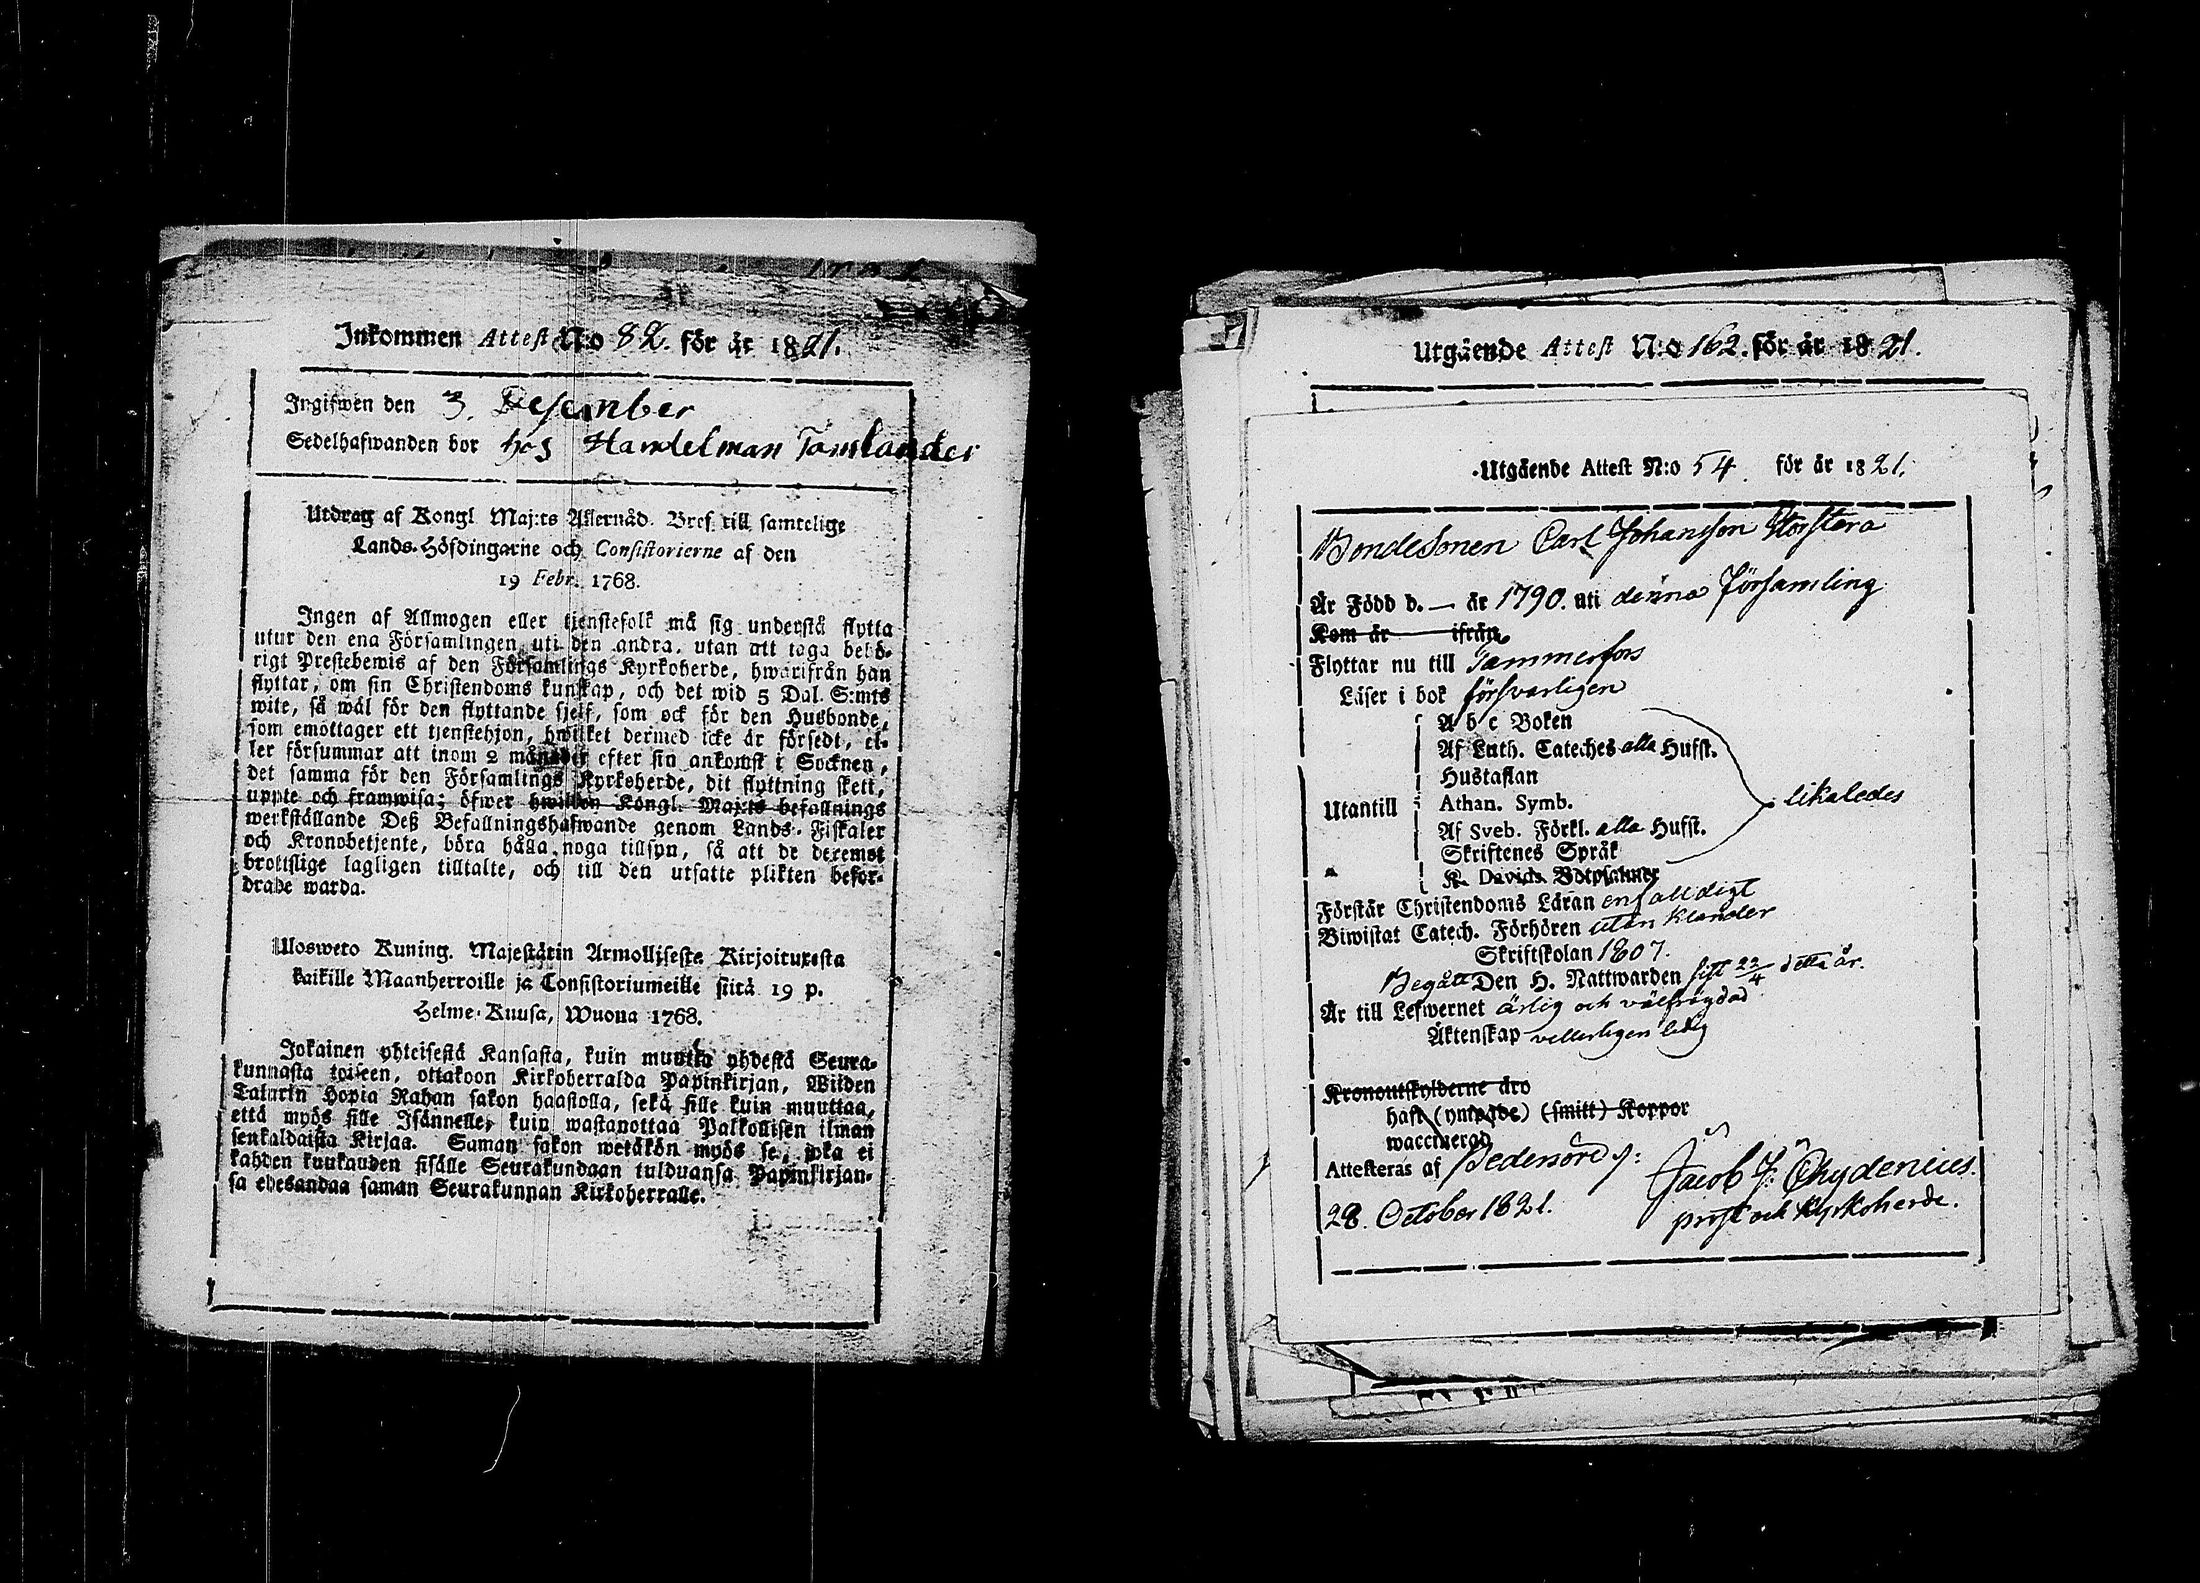 Inkommen Attest N:o 82. för år 1821.
Ingifwen den 3. Desember
Sedelhafwanden bor hos Handelman Tamlander
Utdrag af Kongl. Maj:ts Allernåd. Bref till samtelige
Lands-Höfdingarne och Consistorierne af den
19 Febr. 1768.
Ingen af Allmogen eller tjenstefolk må sig understå flytta
utur den ena Församlingen uti den andra, utan att taga behö-
rigt Prestebewis af den Församlings Kyrkoherde, hwarifrån han
flyttar, om sin Christendoms kunskap, och det wid 5 Dal. S:mts
wite, så wäl för den flyttande sjelf, som ock för den Husbonde,
som emottager ett tjenstehjon, hwilket dermed icke är försedt, el-
ler försummar att inom 2 månader efter sin ankomst i Socknen,
det samma för den Församlings Kyrkoherde, dit flyttning skett,
uppte och framwisa; öfwer hwilken Kongl. Maj:ts befallnings
werkställande Deß Befallningshafwande genom Lands-Fiskaler
och Kronobetjente, böra hålla noga tillsyn, så att de deremot
brottslige lagligen tilltalte, och till den utsatte plikten befor-
drade warda.
Ulosweto Kuning. Majestätin Armollisesta Kirjoituxesta
kaikille Maanherroille ja Consistoriumeille siitä 19 p.
Helme-Kuusa, Wuona 1768.
Jokainen yhteisestä Kansasta, kuin muutta yhdestä Seura-
kunnasta toiseen, ottakoon Kirkoherralda Papinkirjan, Wiiden
Talarin Hopia Rahan sakon haastolla, sekä sille kuin muuttaa,
että myös sille Isännelle, kuin wastanottaa Palkollisen ilman
senkaldaista Kirjaa. Saman sakon wetäkön myös se, joka ei
kahden kuukauden sisälle Seurakundaan tulduansa Papinkirjan-
sa edesandaa saman Seurakunnan Kirkoherralle.
Utgående Attest N:o 162. för år 1821.
Utgående Attest N:o 54. för år 1821.
Bondesonen Carl Johansson Storstera
Är Född d. — år 1790. uti denna Församling
Kom år ifrån
Flyttar nu till Tammerfors
Läser i bok försvarligen
A b c Boken
Af Luth. Cateches alla Hufst.
Hustaflan
Utantill Athan. Symb. likaledes
Af Sveb. Förkl. alla Hufst.
Skriftenes Språk
K. Davids Botpsalmer
Förstår Christendoms Läran enfalldigt
Biwistat Catech. Förhören utan klander
Skriftskolan 1807.
Begått Den H. Nattwarden sist 22/4 detta år.
Är till Lefwernet ärlig och välfrägdad
Äktenskap vetterligen ledig
Kronoutskylderne äro
haft (ympade) (smitt) Koppor
waccinerad
Attesteras af Pedersöre s: Jacob J: Chydenius.
28. October 1821. prost och Kyrkoherde.